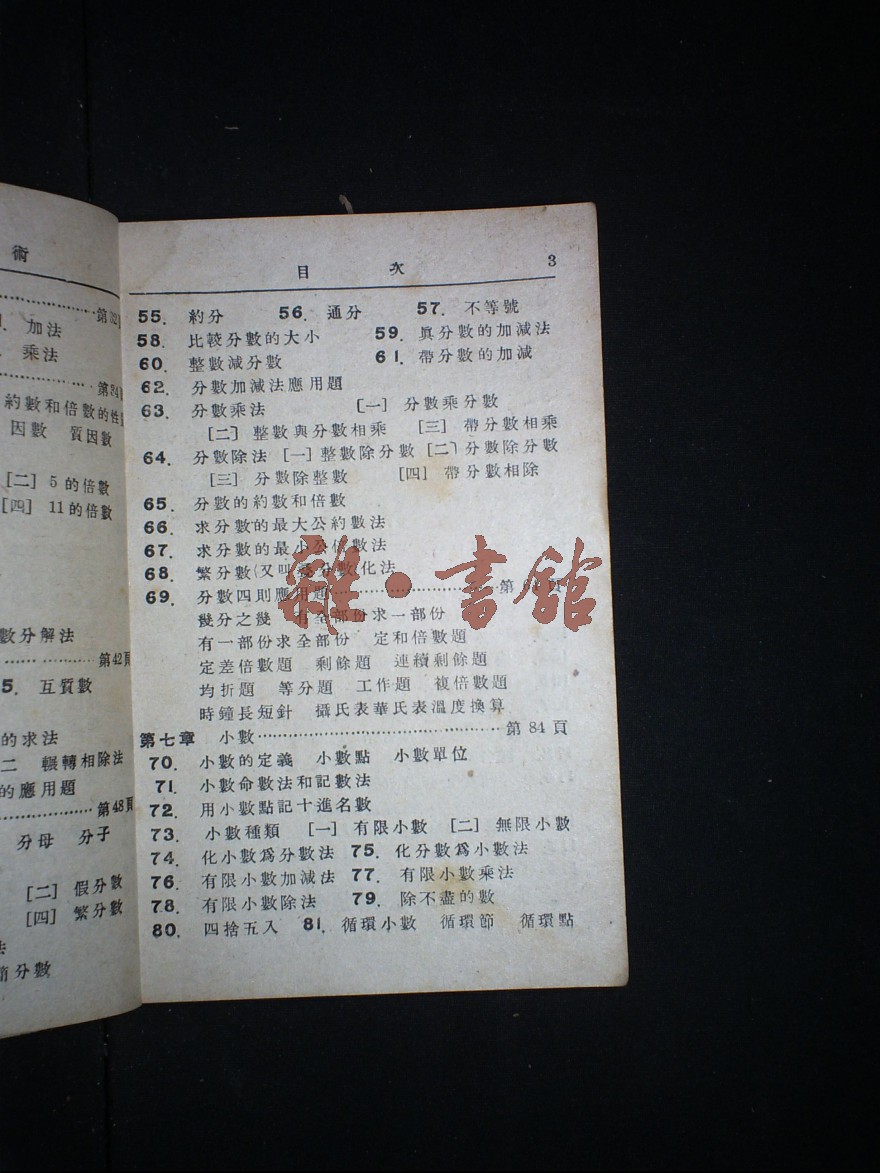 術
第32頁
加法
乘法
第34
約數和倍數的性
因數 質因數
[二] 5 的倍數
[四] 11 的倍數
數分解法
第42頁
5. 互質數
的求法
二 輾轉相除法
的應用題
第48頁
分母 分子
[二] 假分數
[四] 繁分數
法
分數
目 次 3
55. 約分 56. 通分 57. 不等號
58. 比較分數的大小 59. 眞分數的加減法
60. 整數減分數 61. 帶分數的加減
62. 分數加減法應用題
63. 分數乘法 [一] 分數乘分數
[二] 整數與分數相乘 [三] 帶分數相乘
64. 分數除法 [一] 整數除分數 [二] 分數除分數
[三] 分數除整數 [四] 帶分數相除
65. 分數的約數和倍數
66. 求分數的最大公約數法
67. 求分數的最小公倍數法
68. 繁分數(又叫疊分數)化法
69. 分數四則應用題……第 6 頁
幾分之幾 有全部份求一部份
有一部份求全部份 定和倍數題
定差倍數題 剩餘題 連續剩餘題
均折題 等分題 工作題 複倍數題
時鐘長短針 攝氏表華氏表溫度換算
第七章 小數……第 84 頁
70. 小數的定義 小數點 小數單位
71. 小數命數法和記數法
72. 用小數點記十進名數
73. 小數種類 [一] 有限小數 [二] 無限小數
74. 化小數爲分數法 75. 化分數爲小數法
76. 有限小數加減法 77. 有限小數乘法
78. 有限小數除法 79. 除不盡的數
80. 四捨五入 81. 循環小數 循環節 循環點
雜·書館